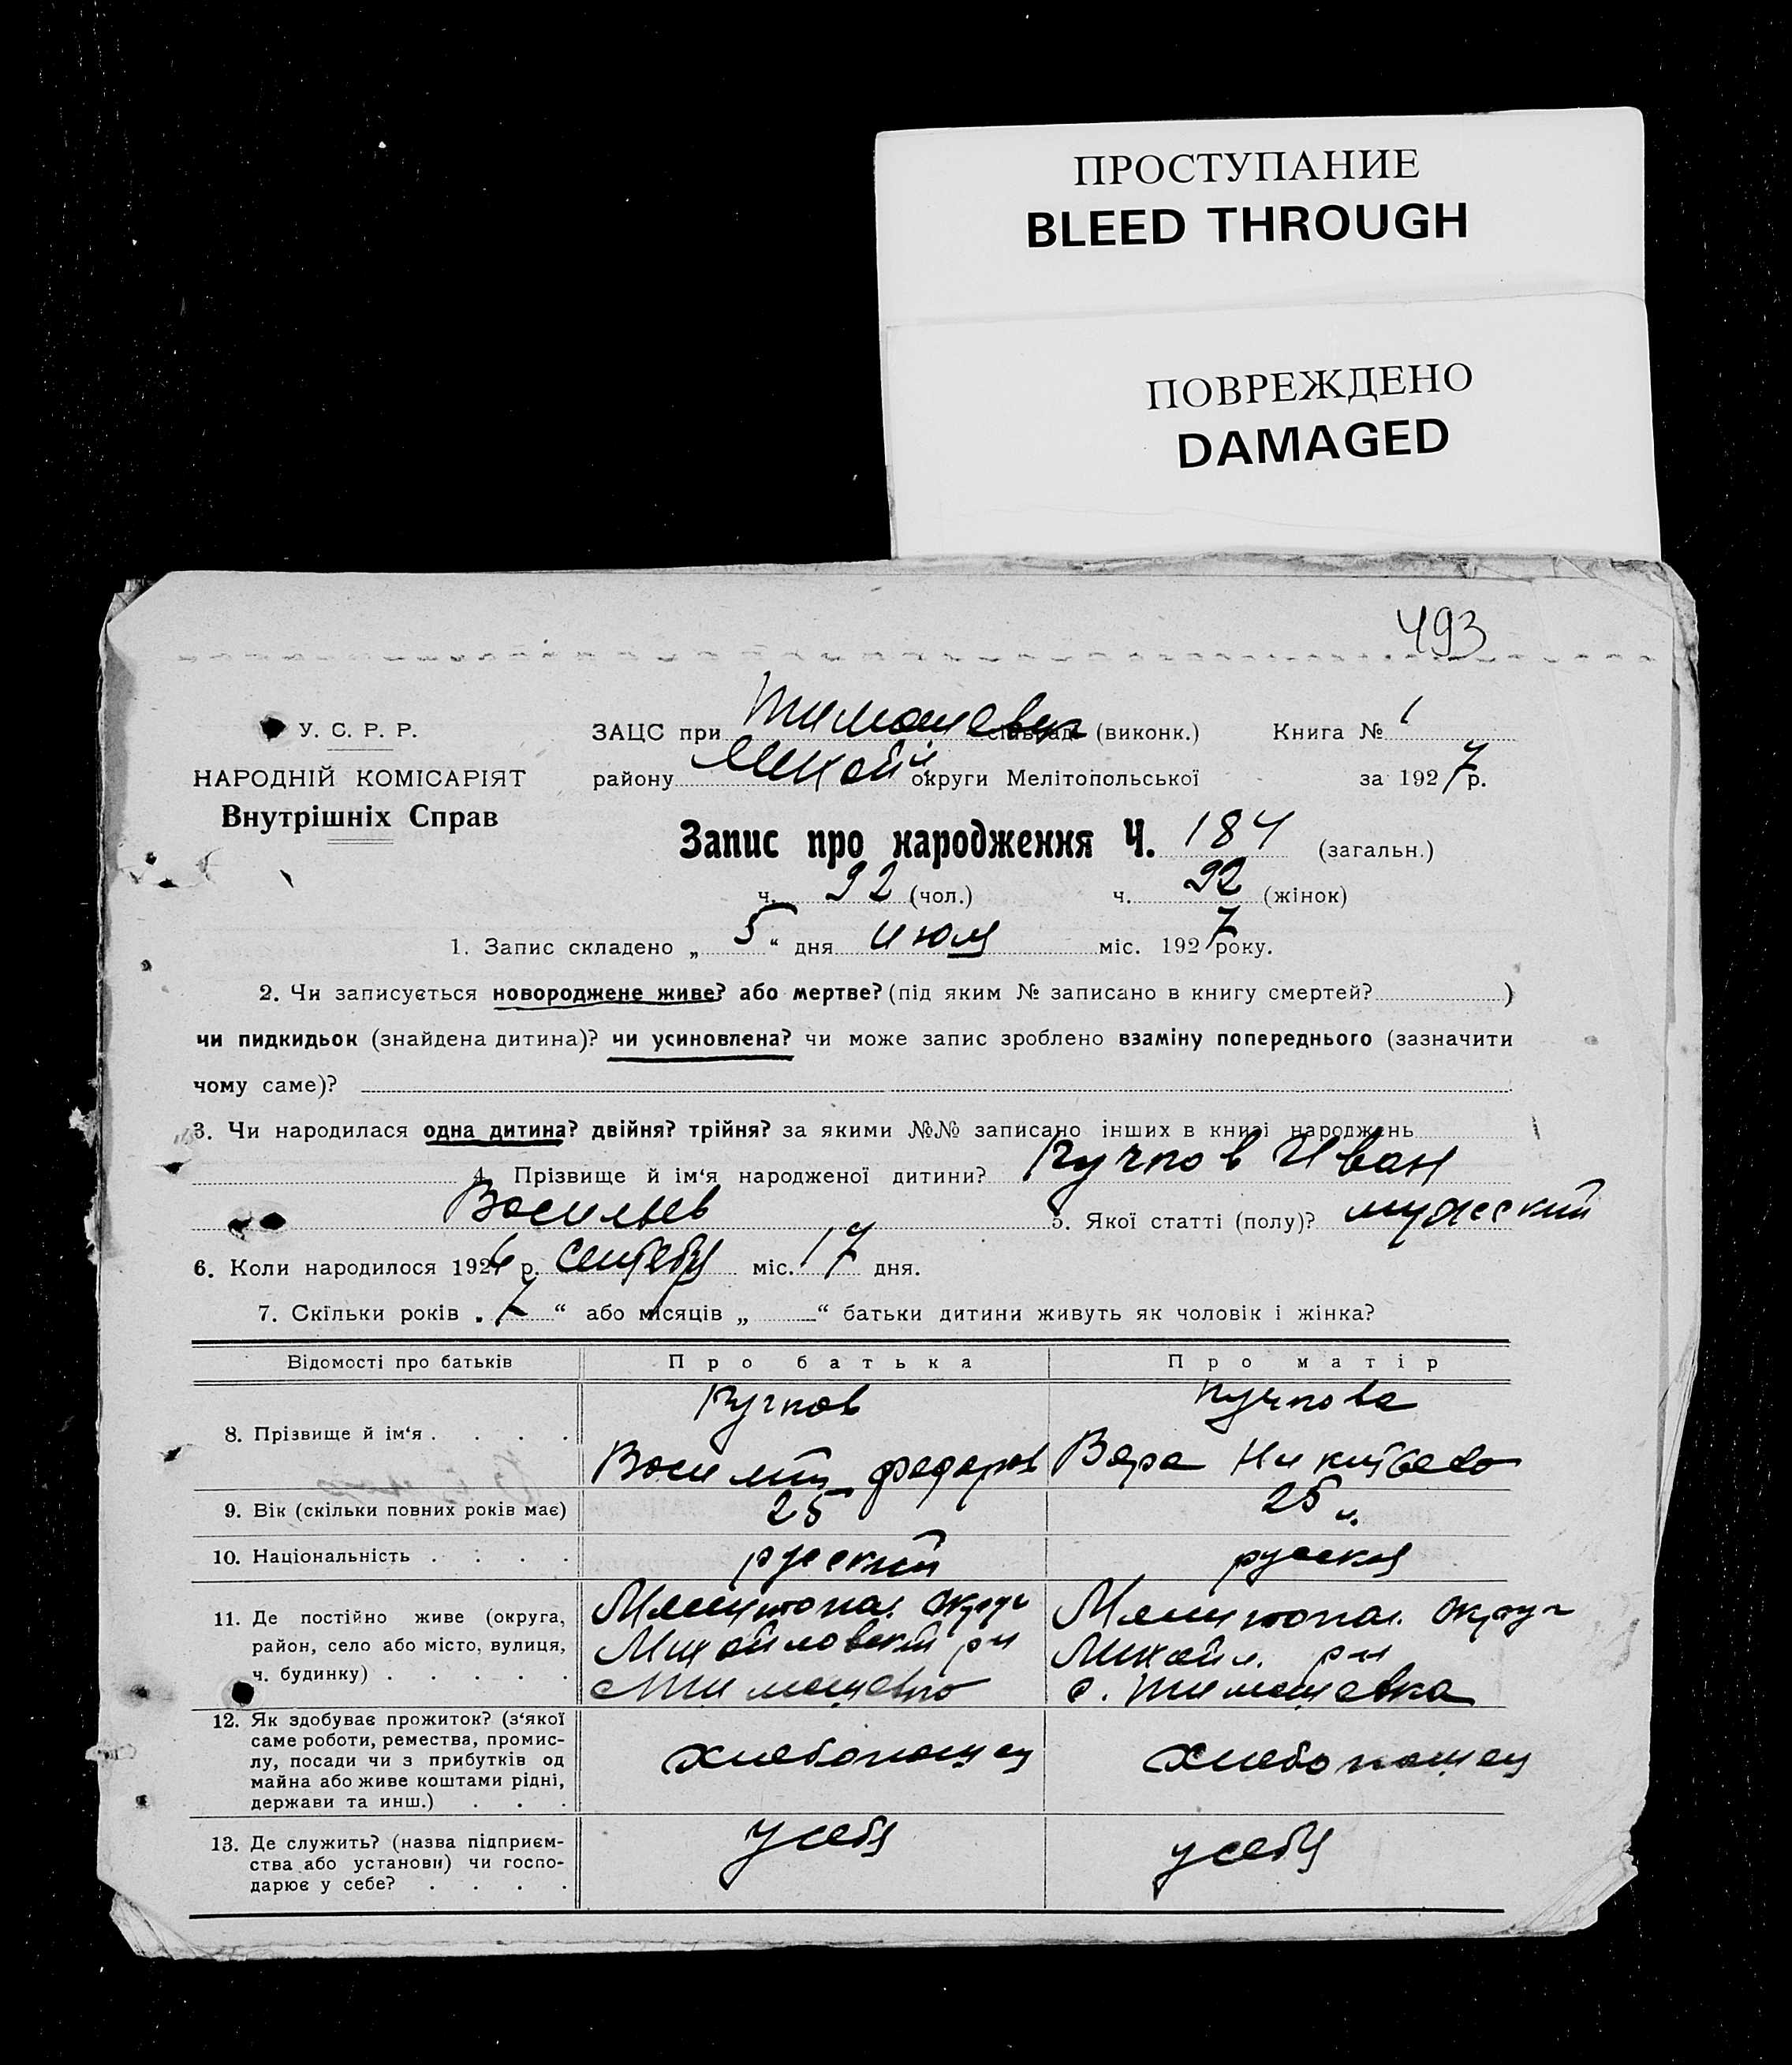 ПРОСТУПАНИЕ
BLEED THROUGH
ПОВРЕЖДЕНО
DAMAGED
493
У. С. Р. Р.
НАРОДНІЙ КОМІСАРІЯТ
Внутрішніх Справ
ЗАЦС при Тимошевк (виконк.) Книга № 1
району Михайл округи Мелітопольської за 1927 р.
Запис про народження Ч. 184 (загальн.)
ч. 92 (чол.) ч. 92 (жінок)
1. Запис складено „ 5 “ дня июля міс. 1927 року.
2. Чи записується новороджене живе? або мертве? (під яким № записано в книгу смертей? )
чи пидкидьок (знайдена дитина)? чи усиновлена? чи може запис зроблено взаміну попереднього (зазначити
чому саме)?
3. Чи народилася одна дитина? двійня? трійня? за якими №№ записано інших в книзі народжень
4. Прізвище й ім‘я народженої дитини? Кучков Иван
Васильев 5. Якої статті (полу)? мужеский
6. Коли народилося 1926 р. сентебр міс. 17 дня.
7. Скільки років „ 7 “ або місяців „ “ батьки дитини живуть як чоловік і жінка?
Відомості про батьків Про батька Про матір
8. Прізвище й ім‘я . . . . Кучков Кучкова
Василий Федоров Вера
9. Вік (скільки повних років має) 25 25 л.
10. Національність . . . . русский русская
11. Де постійно живе (округа, район, село або місто, вулиця, ч. будинку) . . . . .
Мелитопол. округ Мелитопол. округ
Михайловский рн Михайл. рн
с. Тимошевка
12. Як здобуває прожиток? (з‘якої
саме роботи, ремества, промис-
лу, посади чи з прибутків од
майна або живе коштами рідні,
держави та инш.) . . .
хлебопашец хлебопашец
13. Де служить? (назва підприєм-
ства або установи) чи госпо-
дарює у себе? . . . .
у себя у себя